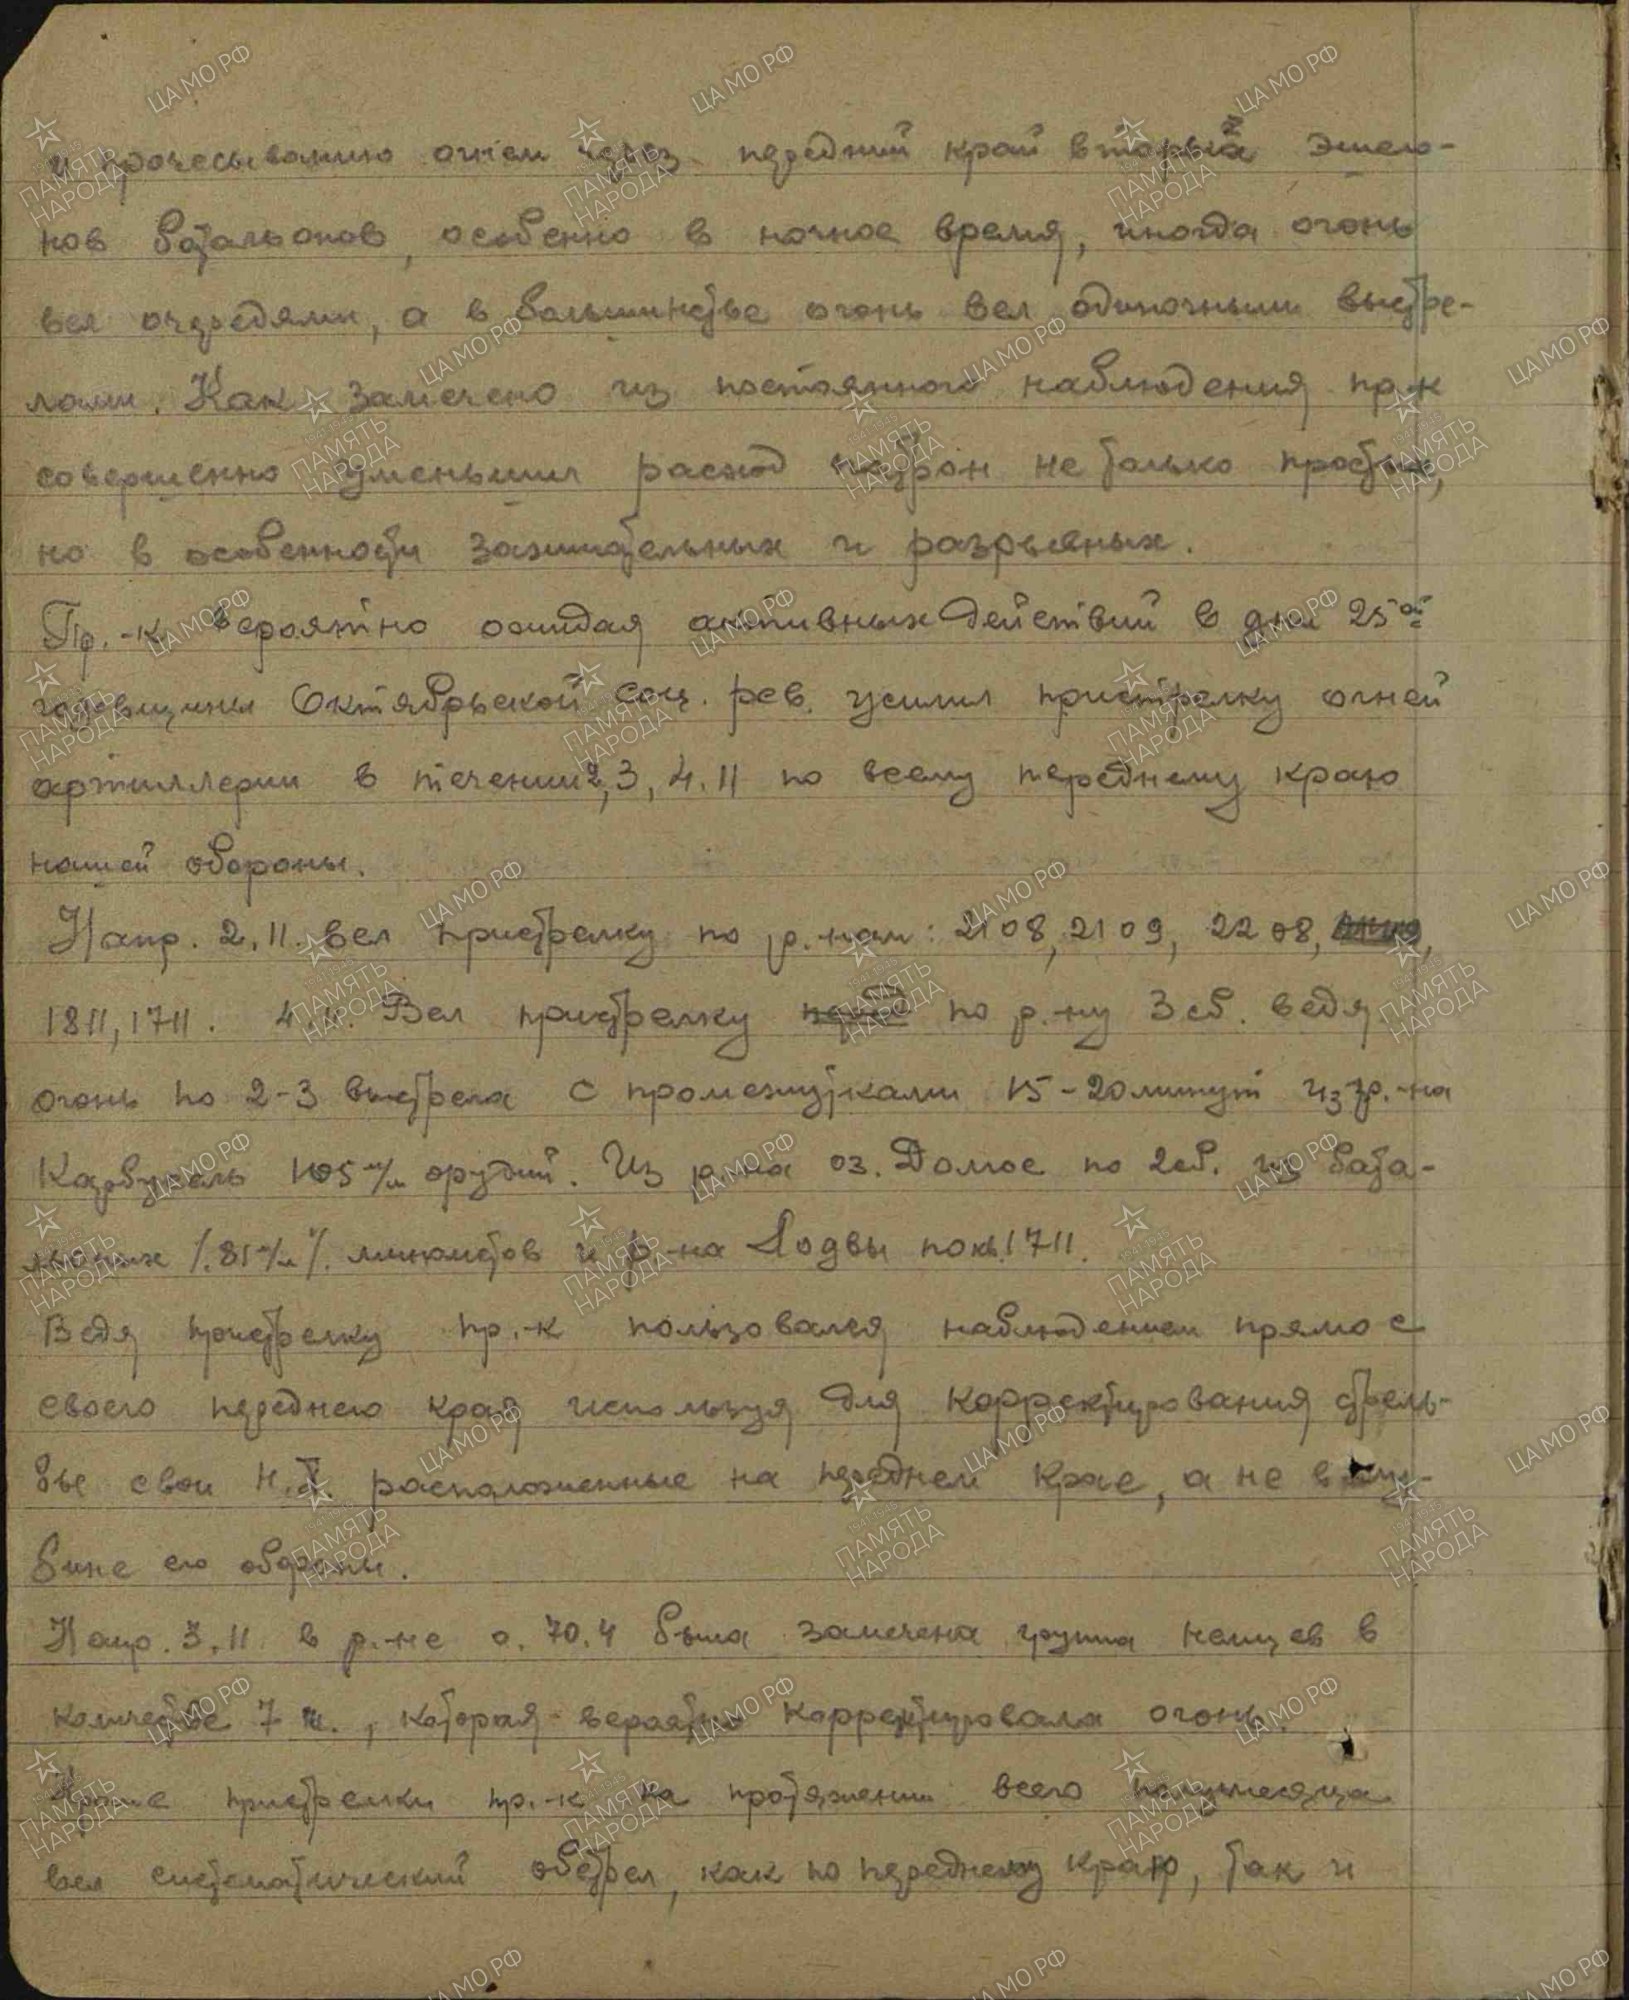 и прочесыванию огнем через передний край вторых эшело-
нов батальонов, особенно в ночное время, иногда огонь
вел очередями, а в большинстве огонь вел одиночными выстре-
лами. Как замечено из постоянного наблюдения пр-к
совершенно уменьшил расход патрон не только простых,
но в особенности зажигательных и разрывных.
Пр.-к вероятно ожидая активных действий в дни 25ой
годовщины Октябрьской соц. рев. усилил пристрелку огней
артиллерии в течении 2, 3, 4.11 по всему переднему краю
нашей обороны.
Напр. 2.11. вел пристрелку по р.-нам: 2108, 2109, 2208,
1811, 1711. 4.11. Вел пристрелку по р.-ну 3 сб. ведя
огонь по 2-3 выстрела с промежутками 15-20 минут из р.-на
Карбусель 105 м/м орудий. Из р-на оз. Долгое по 2 сб. из бата-
льонных /.81 м/м/. минометов и р-на Лодвы по кв. 1711.
Ведя пристрелку пр.-к пользовался наблюдением прямо с
своего переднего края используя для корректирования стрель-
бы свои Н.П. расположенные на переднем крае, а не в глу-
бине его обороны.
Напр. 3.11. в р.-не о. 70.4 была замечена группа немцев в
количестве 7 ч., которая вероятно корректировала огонь.
Кроме пристрелки пр.-к на протяжении всего полумесяца
вел систематический обстрел, как по переднему краю, так и
ЦА МО РФ
ПАМЯТЬ НАРОДА
1941-1945